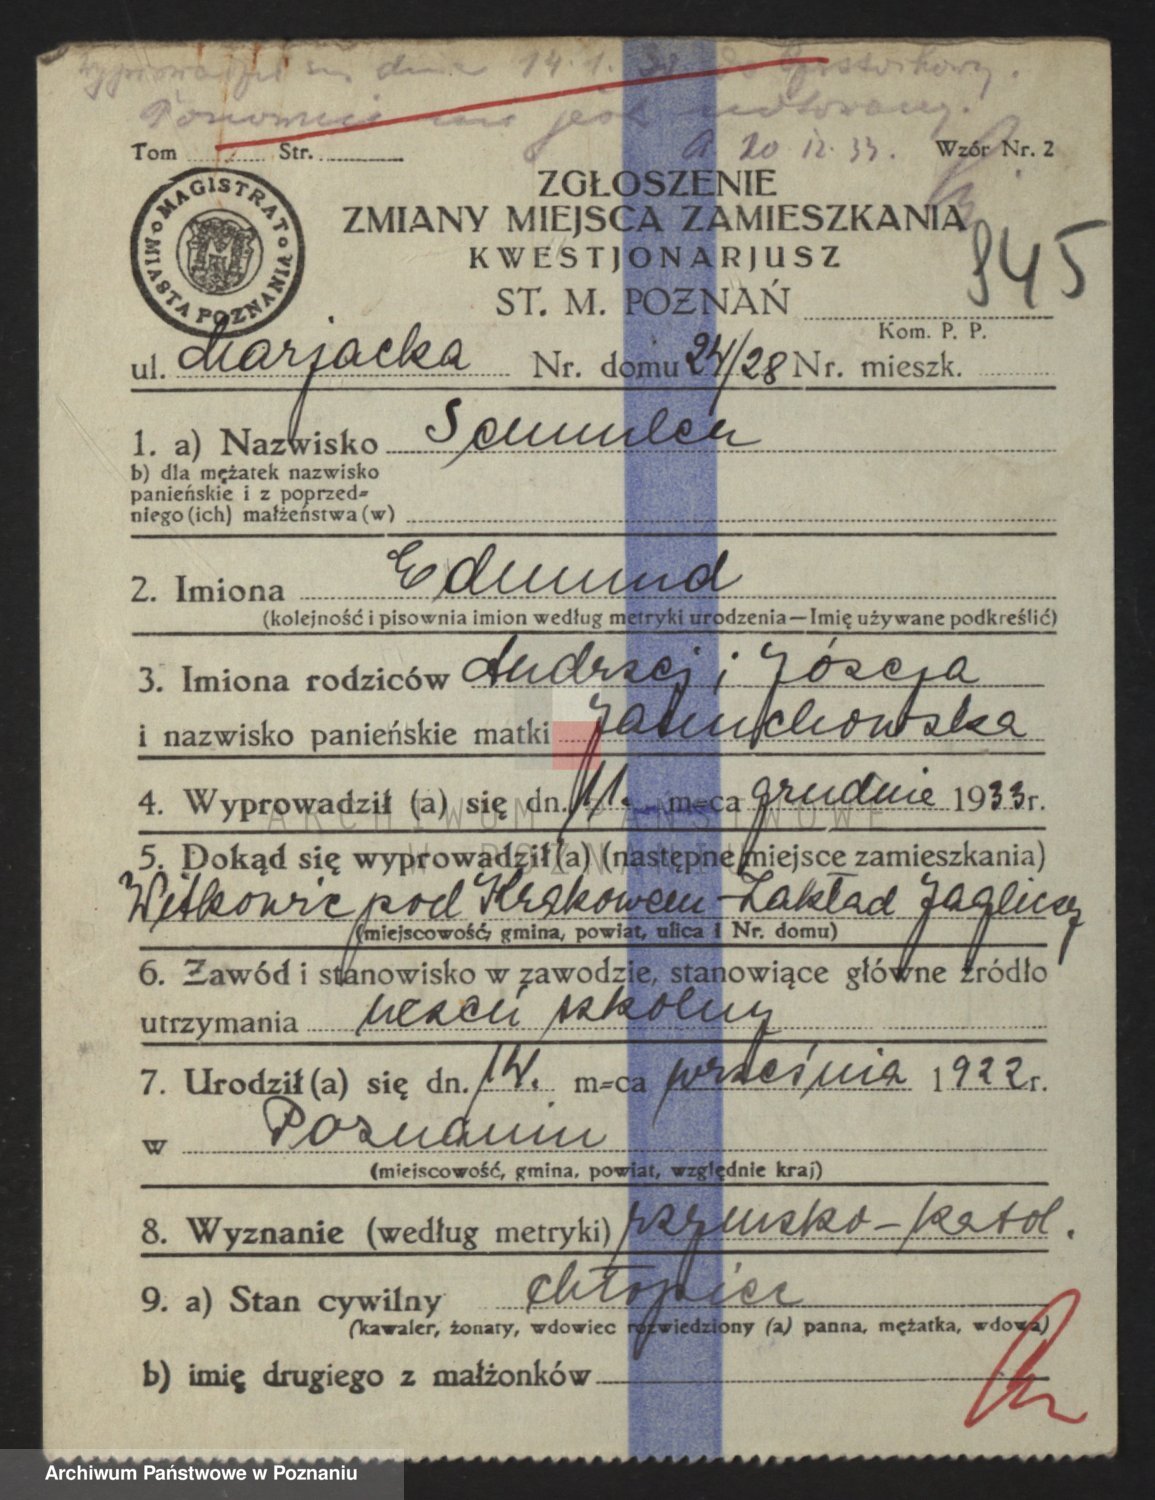 14.1.
nie jest notowany.
Tom ........ Str. ........ 20 12. 33. Wzór Nr. 2
MAGISTRAT MIASTA POZNANIA
ZGŁOSZENIE
ZMIANY MIEJSCA ZAMIESZKANIA
KWESTJONARJUSZ
945
ST. M. POZNAŃ
Kom. P. P.
ul. Marjacka Nr. domu 24/28 Nr. mieszk.
1. a) Nazwisko
b) dla mężatek nazwisko
panieńskie i z poprzed=
niego (ich) małżeństwa (w)
2. Imiona Edmund
(kolejność i pisownia imion według metryki urodzenia—Imię używane podkreślić)
3. Imiona rodziców Andrzej i Józefa
i nazwisko panieńskie matki Januchowska
4. Wyprowadził (a) się dn. 11. m=ca grudnie 1933 r.
ARCHIWUM PAŃSTWOWE
W POZNANIU
5. Dokąd się wyprowadził(a) (następne miejsce zamieszkania)
Witkowic pod Krakowem - Zakład Jaglicz
(miejscowość, gmina, powiat, ulica i Nr. domu)
6. Zawód i stanowisko w zawodzie, stanowiące główne źródło
utrzymania uczeń szkolny
7. Urodził(a) się dn. 14. m=ca września 1922 r.
w Poznaniu
(miejscowość, gmina, powiat, względnie kraj)
8. Wyznanie (według metryki) rzymsko-katol.
9. a) Stan cywilny chłopiec
(kawaler, żonaty, wdowiec rozwiedziony (a) panna, mężatka, wdowa)
b) imię drugiego z małżonków
Archiwum Państwowe w Poznaniu